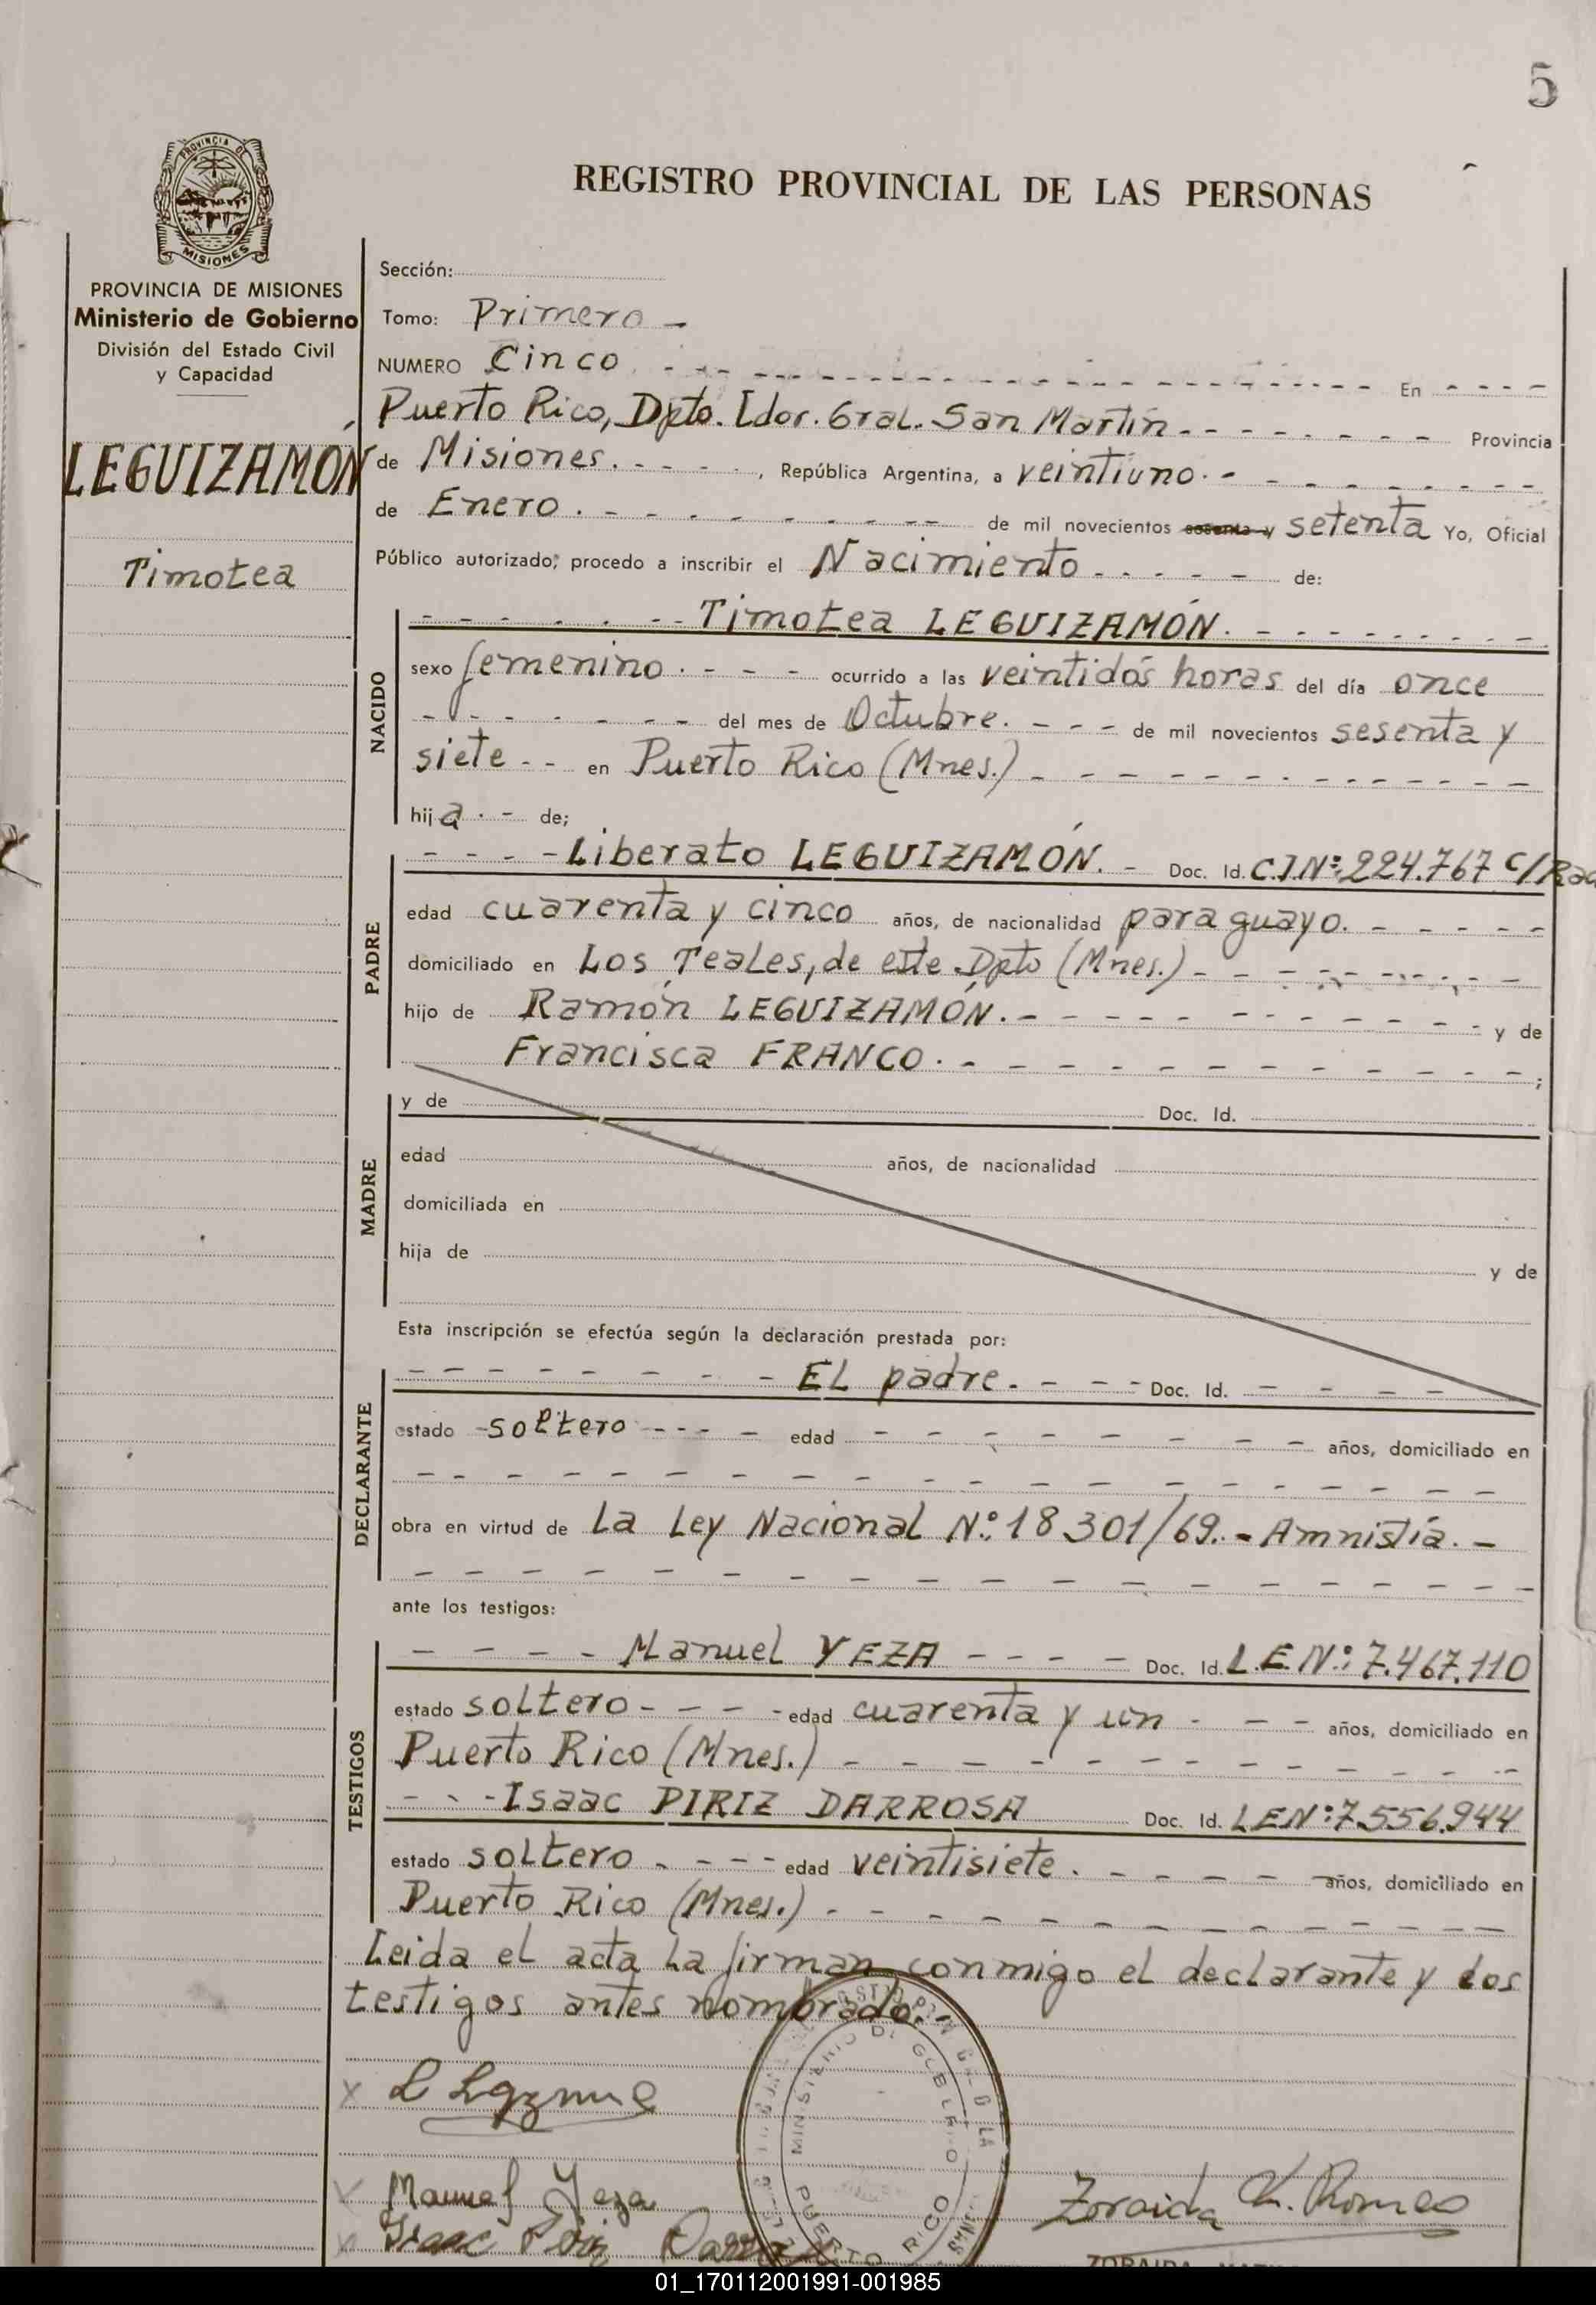 5
REGISTRO PROVINCIAL DE LAS PERSONAS
PROVINCIA DE
MISIONES
PROVINCIA DE MISIONES
Ministerio de Gobierno
División del Estado Civil
y Capacidad
LEGUIZAMÓN
Timotea
Sección:
Tomo: Primero -
NUMERO Cinco. - - - - - - - - - - En - - - -
Puerto Rico, Dpto. Ldor. Gral. San Martín - - - - - - - Provincia
de Misiones. - - - - -, República Argentina, a veintiuno. - - - - - - - -
de Enero. - - - - - - - - de mil novecientos sesenta y setenta Yo, Oficial
Público autorizado, procedo a inscribir el Nacimiento - - - - - de:
NACIDO
- - - - - - Timotea LEGUIZAMÓN. - - - - - - - -
sexo femenino. - - - ocurrido a las veintidós horas del día once
- - - - - - - del mes de Octubre. - - - de mil novecientos sesenta y
siete - - en Puerto Rico (Mnes.) - - - - - - - - - -
hija. - de;
PADRE
- - - - Liberato LEGUIZAMÓN. - Doc. Id. C.I.Nº: 224.767 C/Rad
edad cuarenta y cinco años, de nacionalidad paraguayo. - - - - -
domiciliado en Los Teales, de este Dpto (Mnes.) - - - - - - -
hijo de Ramón LEGUIZAMÓN. - - - - - - - - - - y de
Francisca FRANCO. - - - - - - - - - - - ;
MADRE
y de Doc. Id.
edad años, de nacionalidad
domiciliada en
hija de y de
Esta inscripción se efectúa según la declaración prestada por:
DECLARANTE
- - - - - - - EL padre. - - - Doc. Id. - - - -
estado - soltero - - - - edad - - - - - - - - años, domiciliado en
- - - - - - - - - - - - - - - - - - - -
obra en virtud de La Ley Nacional Nº: 18301/69. - Amnistía. -
- - - - - - - - - - - - - - - - - - - -
ante los testigos:
TESTIGOS
- - - - Manuel YEZA - - - - Doc. Id. L.E.Nº: 7.467.110
estado soltero - - - - edad cuarenta y un - - - años, domiciliado en
Puerto Rico (Mnes.) - - - - - - - - - - - -
- - - Isaac PIRIZ DARROSA Doc. Id. LENº: 7.556.944
estado soltero. - - - - edad veintisiete. - - - - - años, domiciliado en
Puerto Rico (Mnes.) - - - - - - - - - - - -
Leida el acta la firman conmigo el declarante y dos
testigos antes nombrado.
MINISTERIO DE GOBIERNO
PUERTO RICO
Manuel Yeza
Zoraida K. Romeo
Isaac Piriz
ZORAIDA
01_170112001991-001985